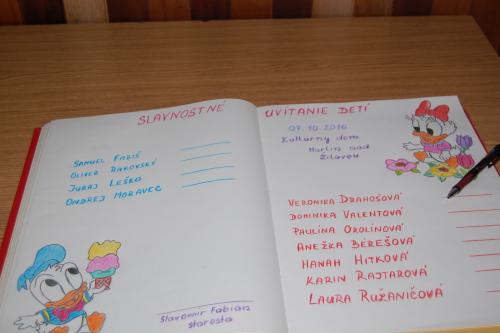 SLAVNOSTNÉ
SAMUEL FABIŠ
OLIVER RAKOVSKÝ
JURAJ LEŠKO
ONDREJ MORAVEC
Slavomír Fabian
starosta
UVÍTANIE DETÍ
07.10.2016
Kultúrny dom
Martin nad
Žitavou
VERONIKA DRAHOŠOVÁ
DOMINIKA VALENTOVÁ
PAULÍNA OROLÍNOVÁ
ANEŽKA BÉREŠOVÁ
HANAH HITKOVÁ
KARIN RAJTAROVÁ
LAURA RUŽANIČOVÁ